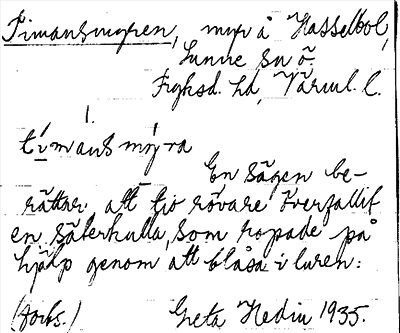 Timansmyren, myr å Hasselbol,
Sunne sn ö.
Fryksd. hd, Värml. l.
tímansmýra
En sägen be-
rättar att tio rövare överfallit
en säterkulla, som ropade på
hjälp genom att blåsa i luren:
(forts.) Greta Hedin 1935.